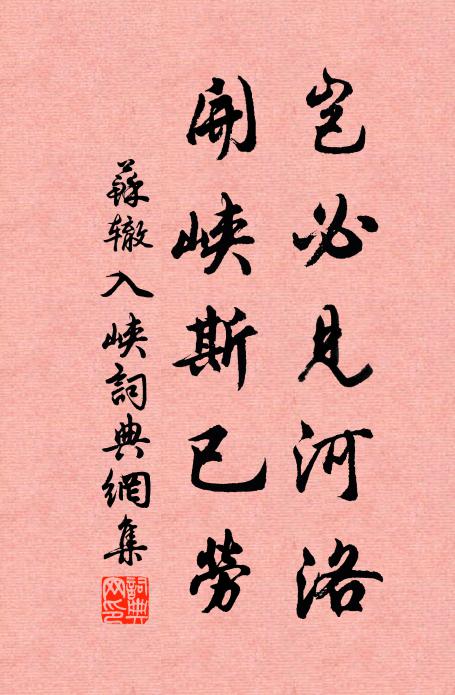 豈必見河洛
開峽斯已勞
蘇辙入峽詞典網集
詞典網印